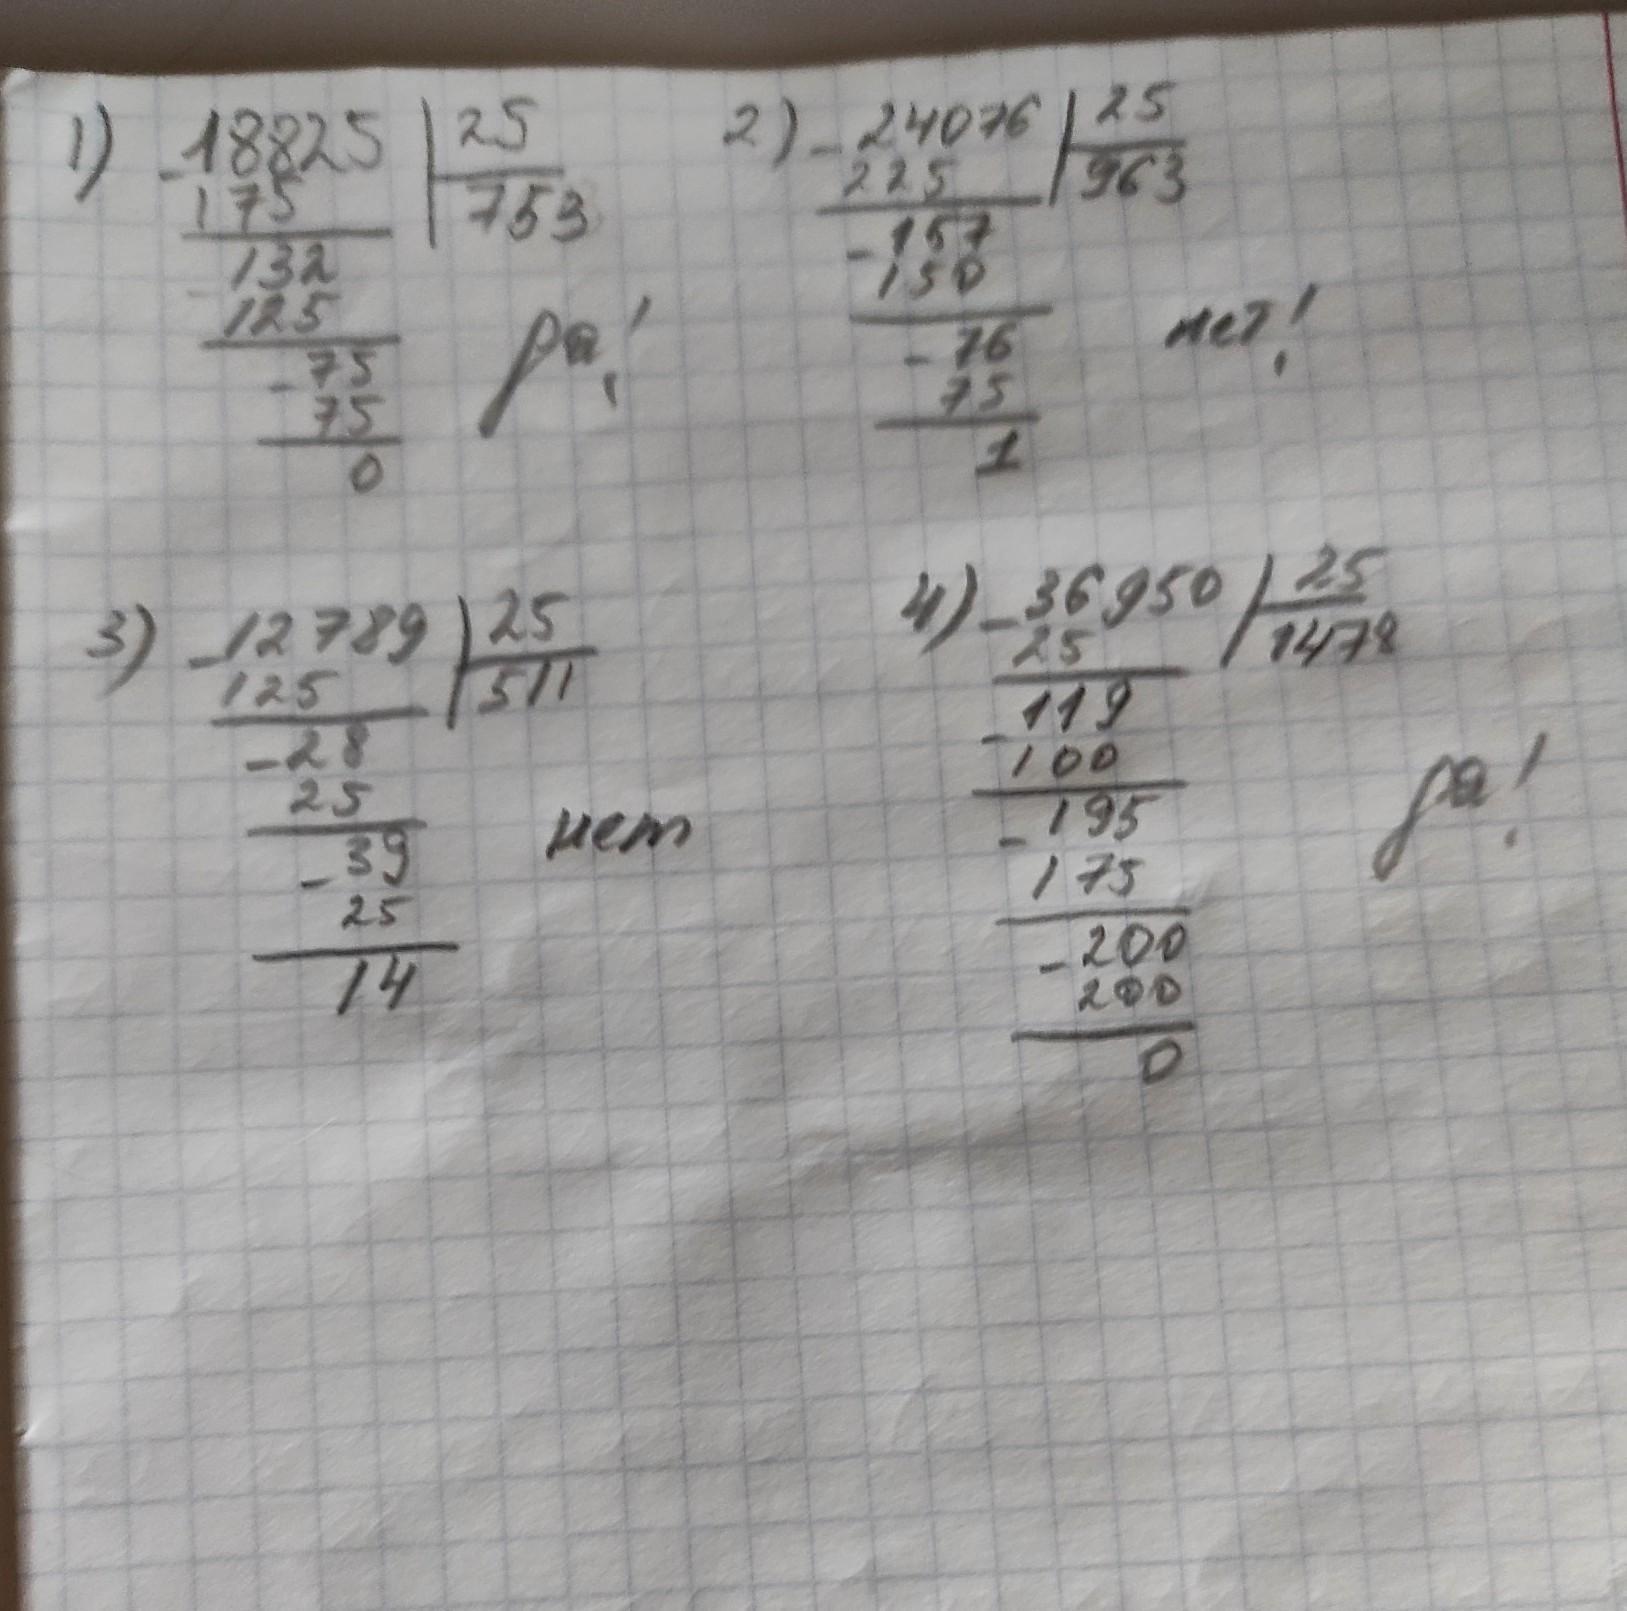 1) -18825 | 25
175 753
132
- 125
-75
75
0
да!
2) - 24076 | 25
225 963
- 157
150
- 76
75
1
нет!
3) -12789 | 25
125 511
-28
25
-39
25
14
нет
4) -36950 | 25
25 1478
- 119
100
- 195
175
-200
200
0
да!